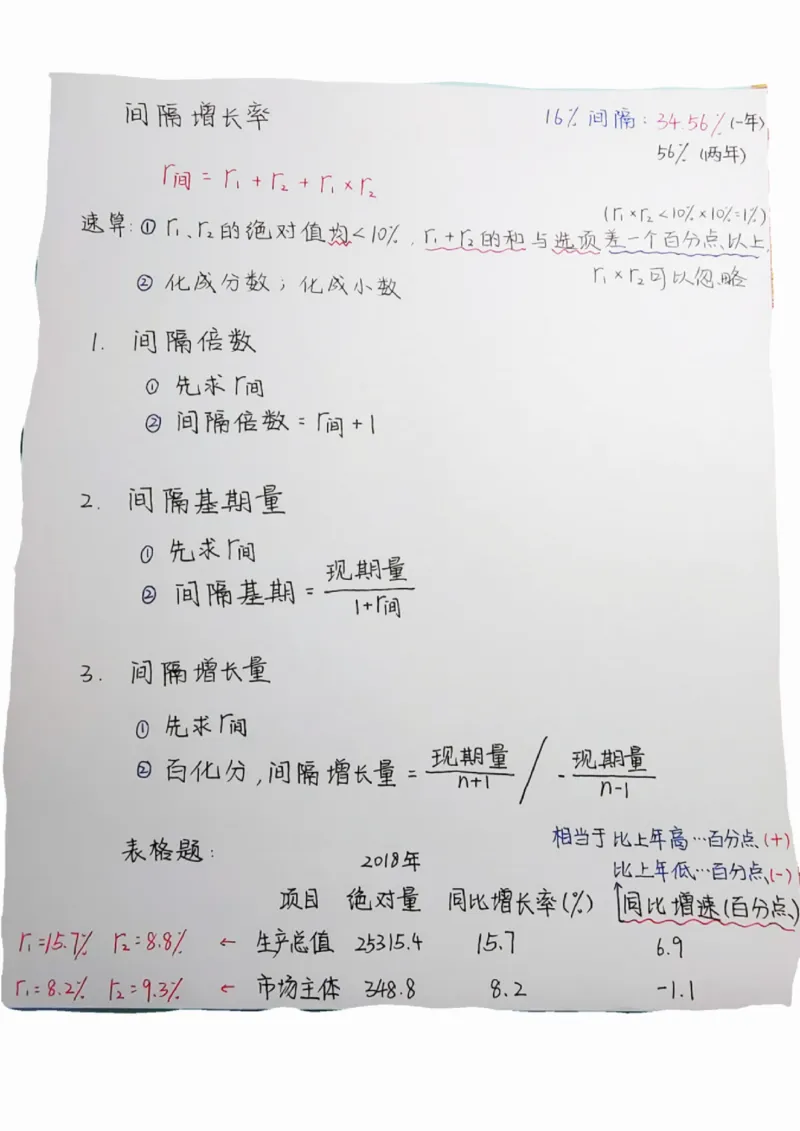 间隔增长率
16% 间隔：34.56% (一年)
56% (两年)
r间 = r₁ + r₂ + r₁ × r₂
(r₁×r₂<10%×10%=1%)
速算：① r₁、r₂的绝对值均<10%，r₁+r₂的和与选项差一个百分点以上，
r₁×r₂可以忽略
② 化成分数；化成小数
1. 间隔倍数
① 先求r间
② 间隔倍数 = r间 + 1
2. 间隔基期量
① 先求r间
② 间隔基期 = 现期量/1+r间
3. 间隔增长量
① 先求r间
② 百化分，间隔增长量 = 现期量/n+1 / -现期量/n-1
相当于比上年高…百分点(+)
表格题：
2018年
比上年低…百分点(-)
项目 绝对量 同比增长率(%) 同比增速(百分点)
r₁=15.7% r₂=8.8% ← 生产总值 25315.4 15.7 6.9
r₁=8.2% r₂=9.3% ← 市场主体 348.8 8.2 -1.1